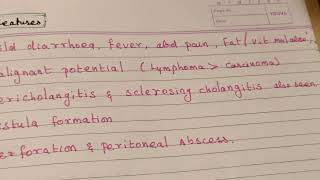 eatures
ild diarrhoea, fever, abd pain, Fat/vit malabs
alignant potential (Lymphoma > Carcinoma)
ericholangitis & sclerosing cholangitis also seen
istula formation
erforation & peritoneal abscess.